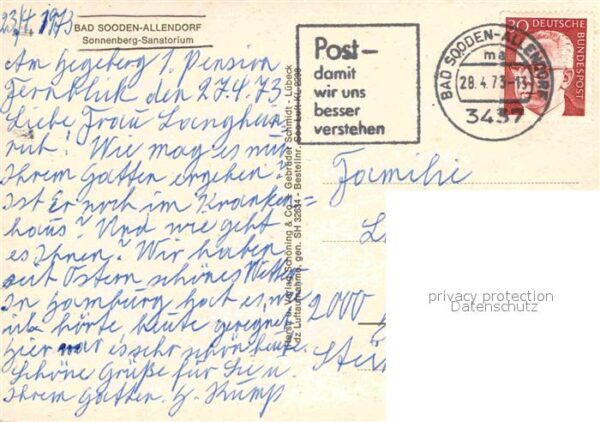 23/4. 1973
BAD SOODEN-ALLENDORF
Sonnenberg-Sanatorium
Am Hegeberg 1. Pension
Fernblick den 27.4.73.
Liebe Frau Langhein-
rich! Wie mag es nur
Ihrem Gatten ergehen?
Ist Er noch im Kranken=
haus? Und wie geht
es Ihnen? Wir haben
seit Ostern schönes Wetter
In Hamburg hat es wie
ich hörte heute geregnet
hier war es sehr schön heute.
Schöne Grüße für Sie u.
Ihrem Gatten. H. Kump
Herst. u. Verlag Schöning & Co. + Gebrüder Schmidt - Lübeck
dz Luftaufnahme, gen. SH 32634 - Bestellnr. Soo Luft KL 2298
Post-
damit
wir uns
besser
verstehen
BAD SOODEN-ALLENDORF
ma
28.4.73-13
3437
30 DEUTSCHE
BUNDESPOST
Familie
L
2000
privacy protection
Datenschutz